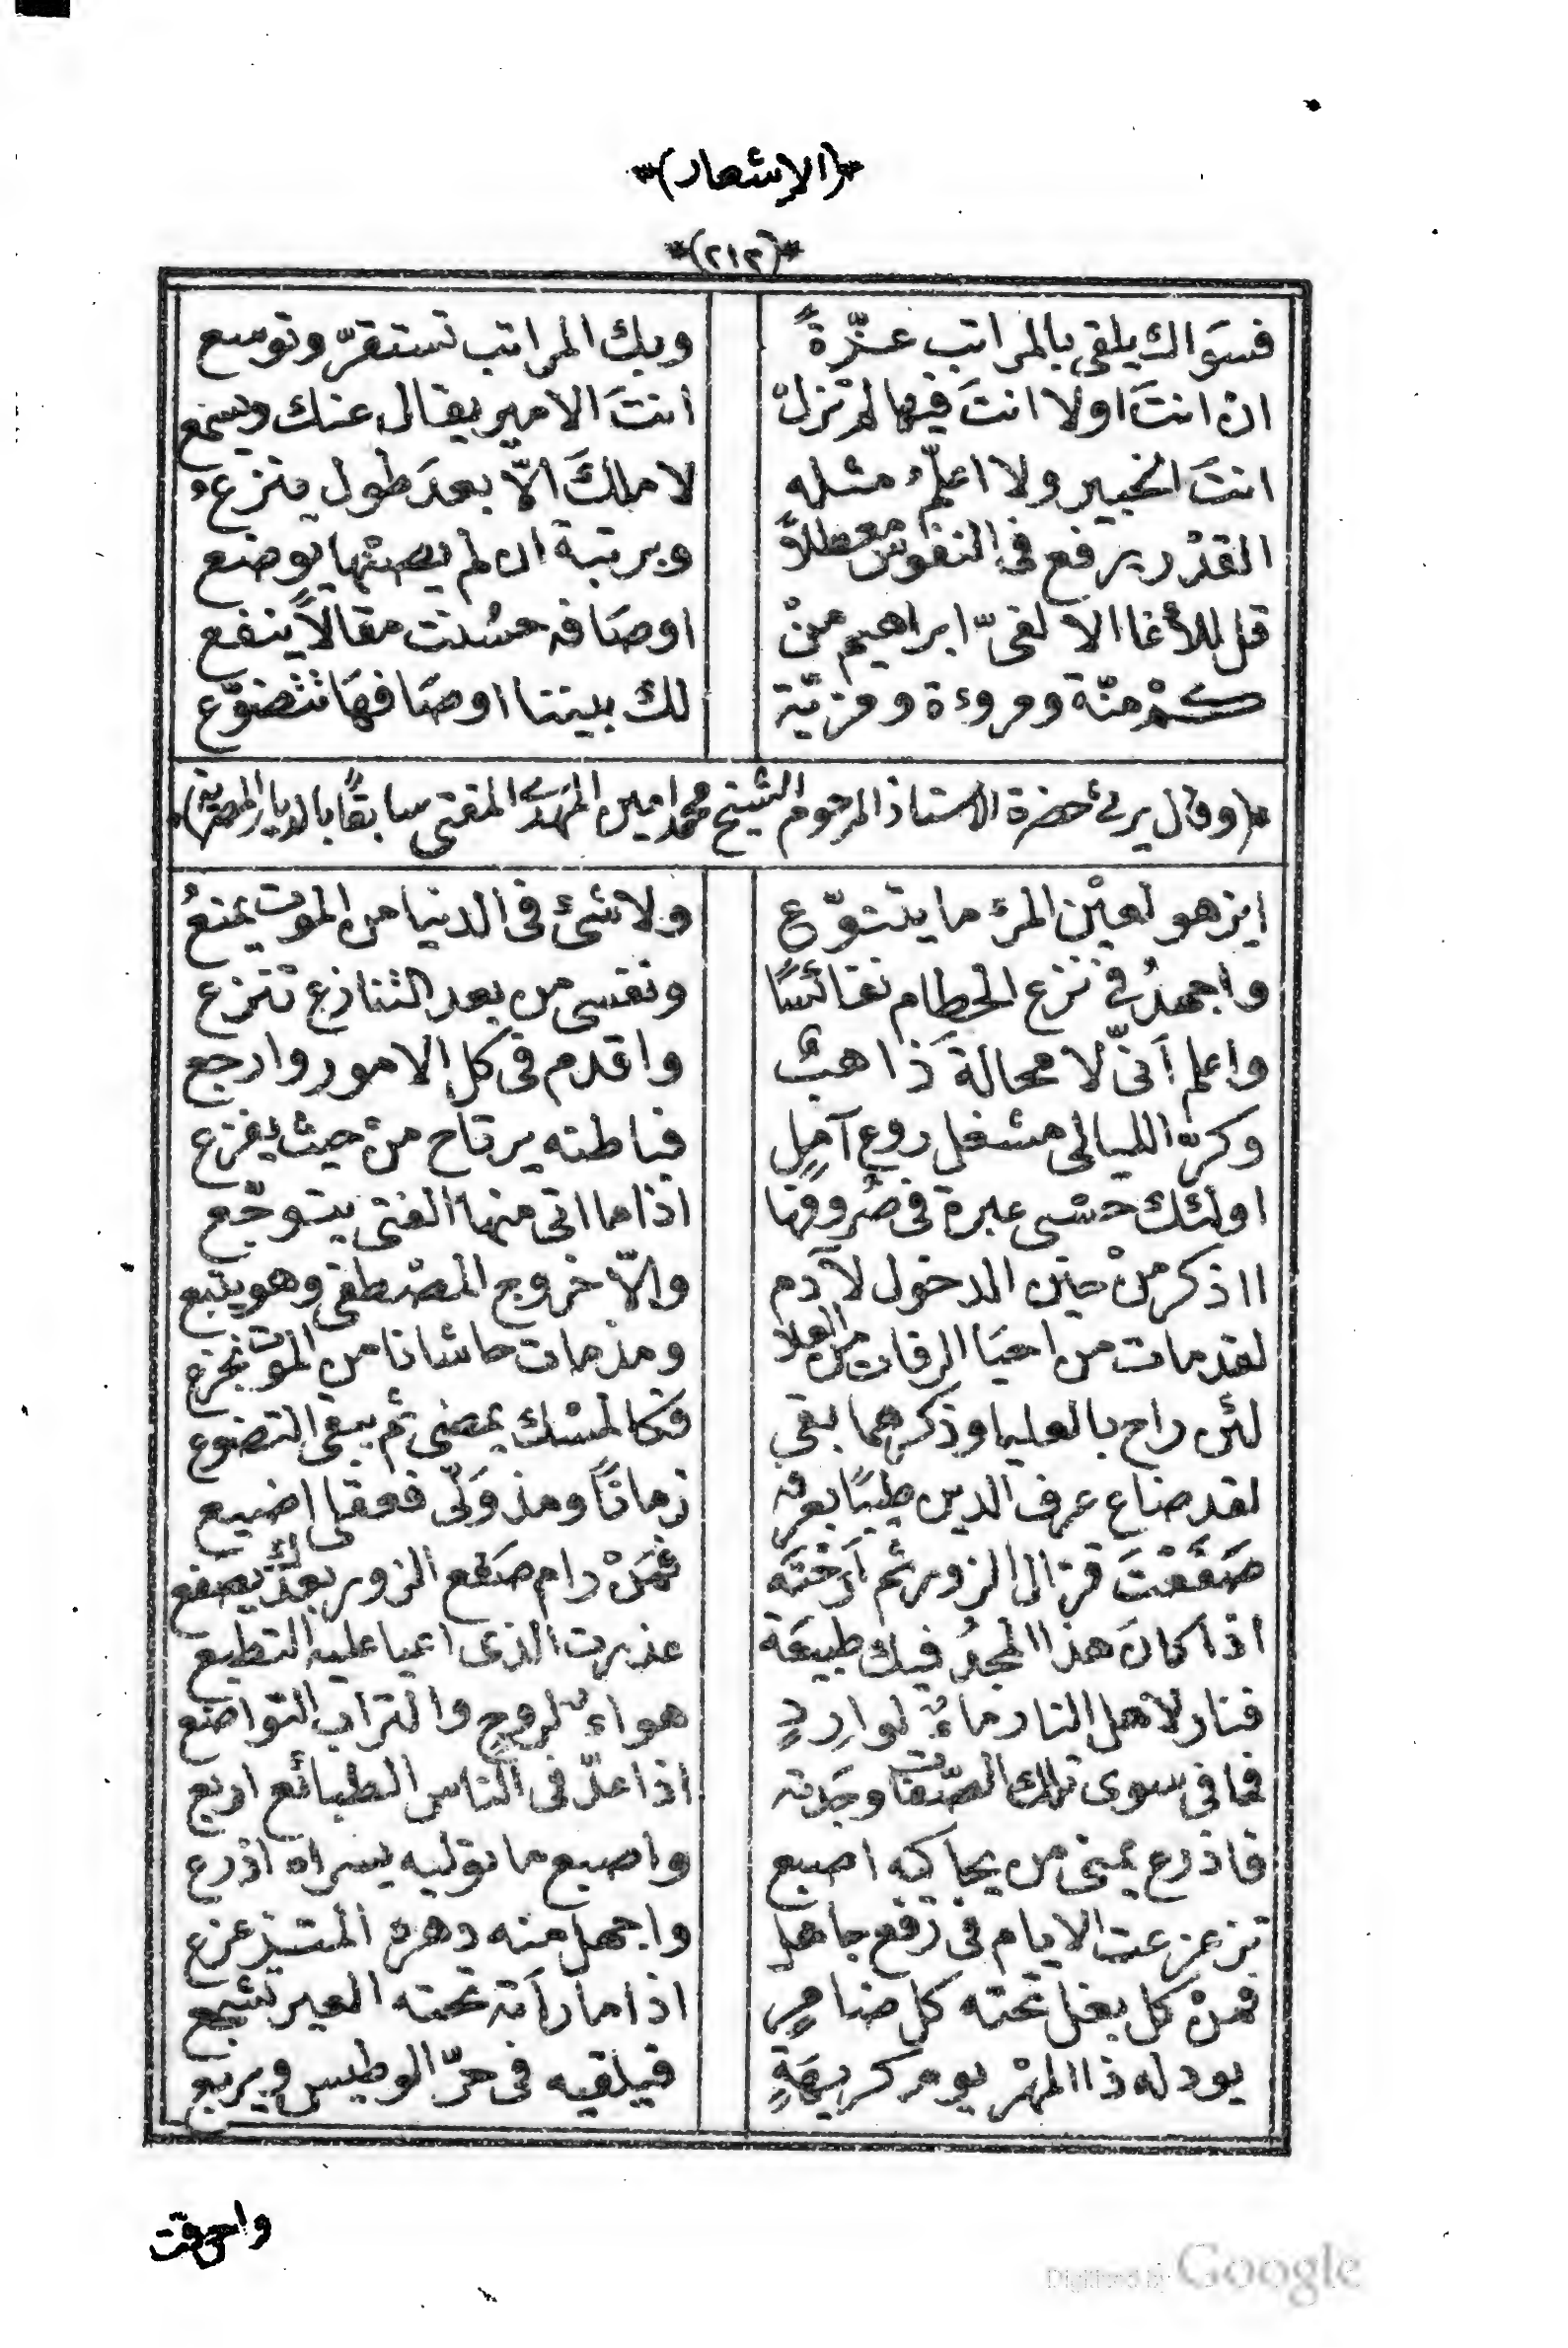 *(الاشعار)*
*(٢١٣)*
فسَواك يلقى بالمراتب عزّةً وبك المراتب تستقرّ وتوسع
ان انتَ اولا انتَ فيها لم تزلْ انتَ الامير يقال عنك ويسمع
انتَ الخبير ولا اعلّم مثله لا ملكَ الّا بعدَ طول ينزع
القدْر يرفع فى النفوس معطلاً وبرتبة ان لم يصنها يوضع
قل للأغا الالفىّ ابراهيم منْ اوصَافه حسُنت مقالاً ينفع
كمْ منّة ومروءة ومزيّة لك بيننا اوصَافهَا تتضوّع
*(وقال يرثى حضرة الاستاذ المرحوم الشيخ محمد امين المهدى المفتى سابقًا بالديار المصرية)*
ايزهو لعيْن المرء ما يتنوّع ولا شئ فى الدنيا من الموت يمنعُ
واجهدُ فى نزع الحطام نفائسًا ونفسى من بعد التنازع تنزع
واعلم أنّى لا محالةَ ذاهبٌ واقدم فى كل الامور وارجع
وكرّ الليالى مشغل روع آملٍ فباطنه يرتاح منْ حيث يفزع
اولئك حسْبى عبرة فى صُروفها اذا ما اتى منها الفتى يتوجّع
ااذكر منْ حين الدخول لآدم والّا خروج المصْطفى وهو يتبع
لقد مات من احيَا الرفات من العلا ومذ مات حاشانا من الموت نجزع
لئن راح بالعليا وذكرهما بقى فكالمسْك يمضى ثم يبقى التضوع
لقد ضاع عرف الدين طيبًا بعرفه زمانًا ومذ ولّى فحقى اضيع
صَفَعْتَ قذال الزور ثم أرَحْتَه فمَنْ رام صَفع الزور بعدَك يصفع
اذا كانَ هذا المجدُ فيك طبيعَة عذرت الذى اعيا عليه التطبع
فنار لاهل النار ماءٌ لوارِدٍ هواءٌ لروحٍ والتراب التواضع
فما فى سوى تلك الصّفات وجَدته اذا عدّ فى الناس الطبائع اربع
فاذرع يمنى من يحاكيه اصبع واصبع ما توليه يسراه اذرع
تزعزعت الايام فى رفع جاهل واجهل منه دهره المتزعزع
فمنْ كل بغل تحته كل ضامرٍ اذا ما رأته تحته العير تشجع
يود له ذا المهْر يوم كريهَةٍ فيلقيه فى حرّ الوطيس ويربع
Digitized by Google